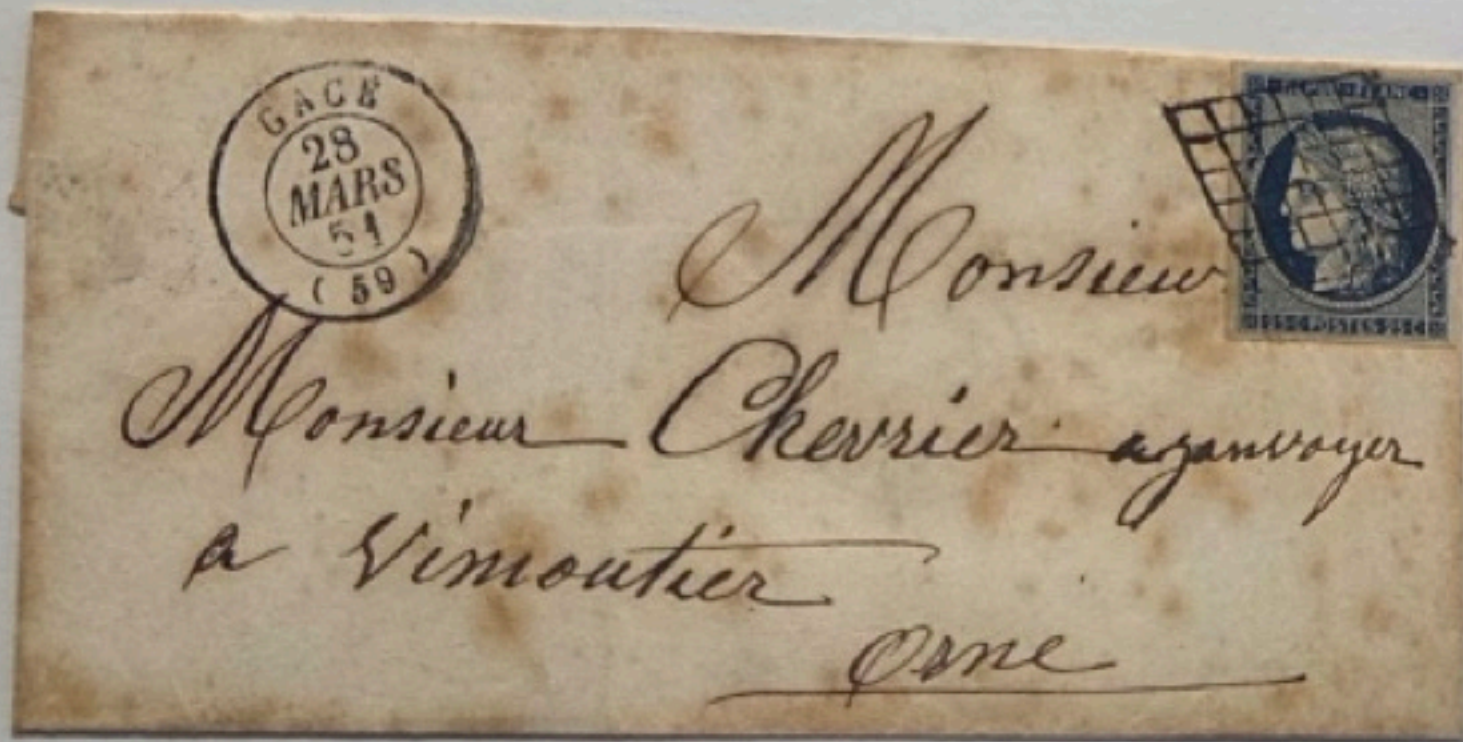 GACÉ
28
MARS
51
( 59 )
REPUB. FRANC.
25 C POSTES 25 C
Monsieur
Monsieur Chevrier agenvoyer
a Vimoutier
Orne